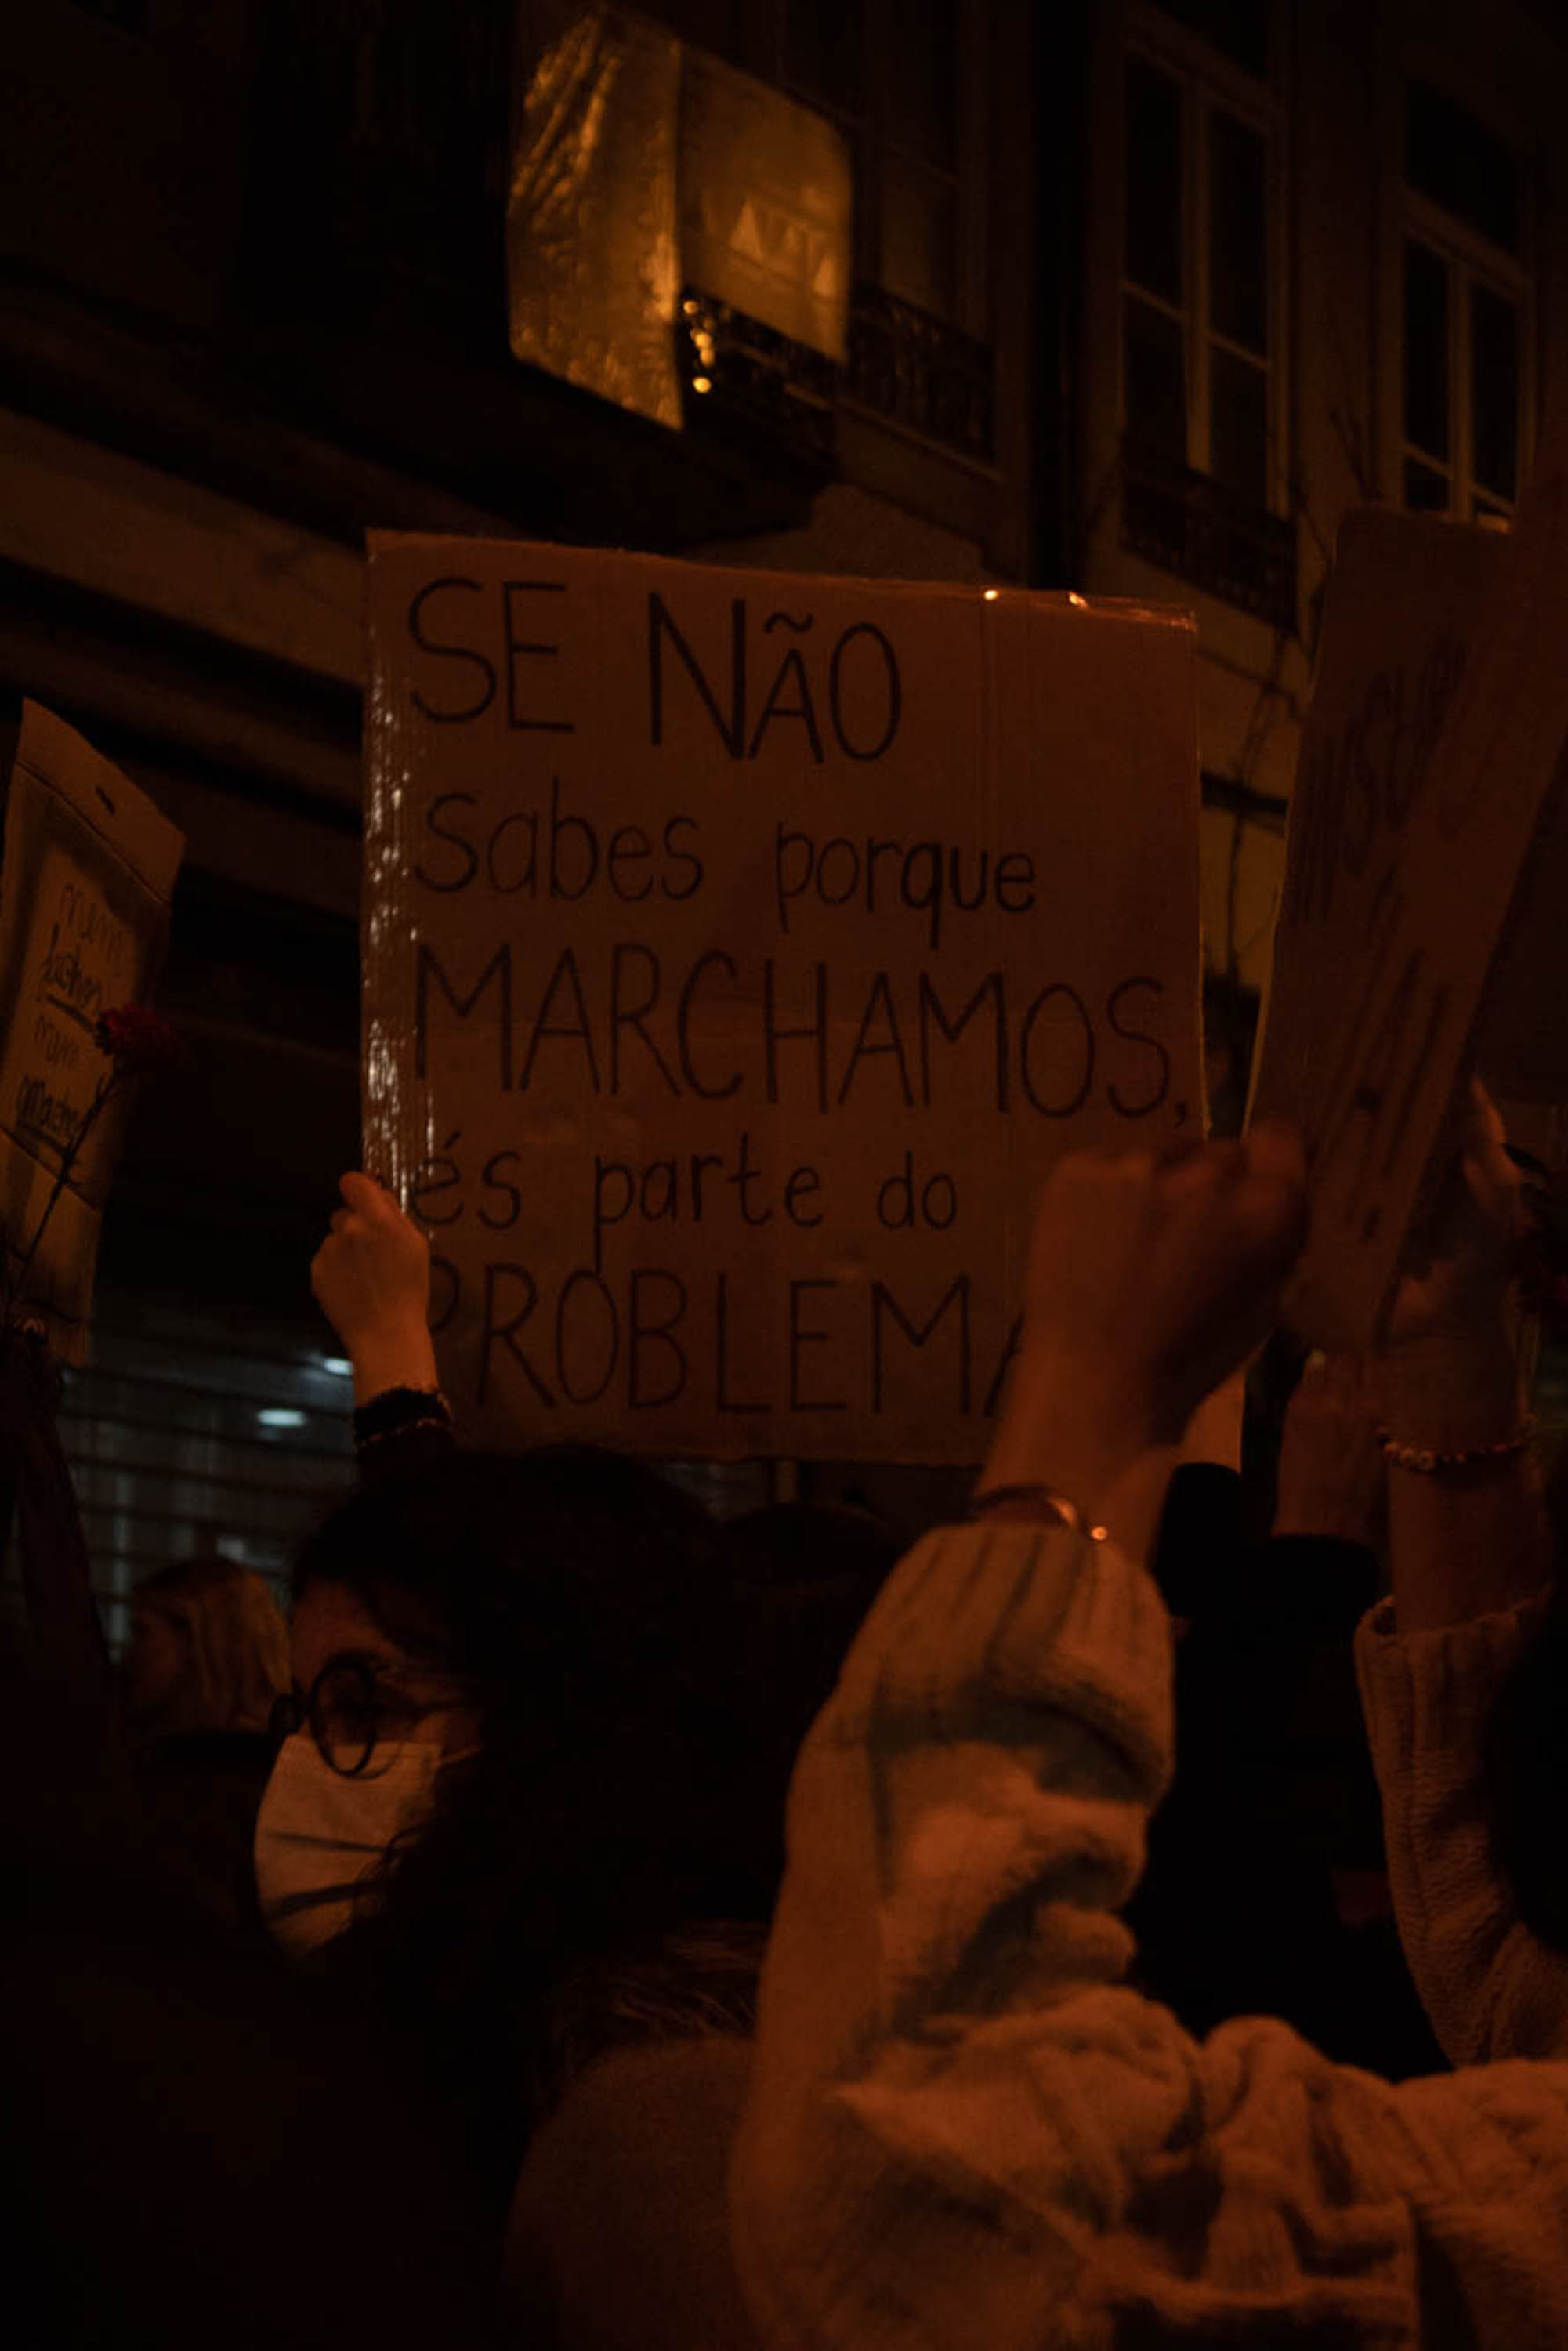 SE NÃO
Sabes porque
MARCHAMOS,
és parte do
PROBLEMA